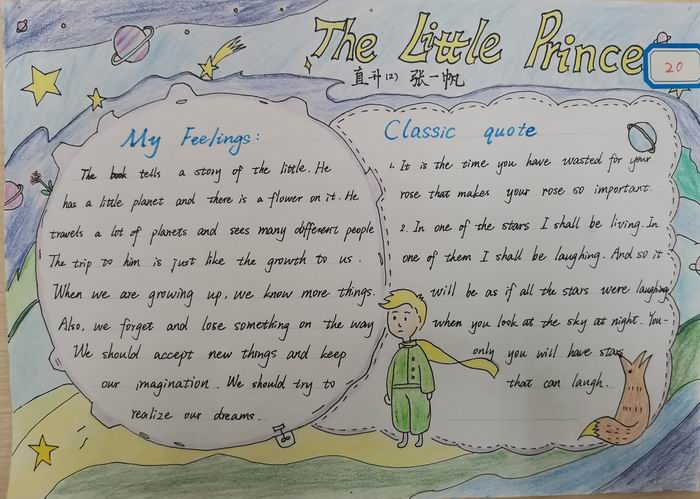 The Little Prince
直升(2) 张一帆
20
My Feelings:
The book tells a story of the little. He
has a little planet and there is a flower on it. He
travels a lot of planets and sees many different people
The trip to him is just like the growth to us.
When we are growing up, we know more things.
Also, we forget and lose something on the way
We should accept new things and keep
our imagination. We should try to
realize our dreams.
Classic quote
1. It is the time you have wasted for your
rose that makes your rose so important.
2. In one of the stars I shall be living. In
one of them I shall be laughing. And so it
will be as if all the stars were laughing,
when you look at the sky at night. You-
only you will have stars
that can laugh.